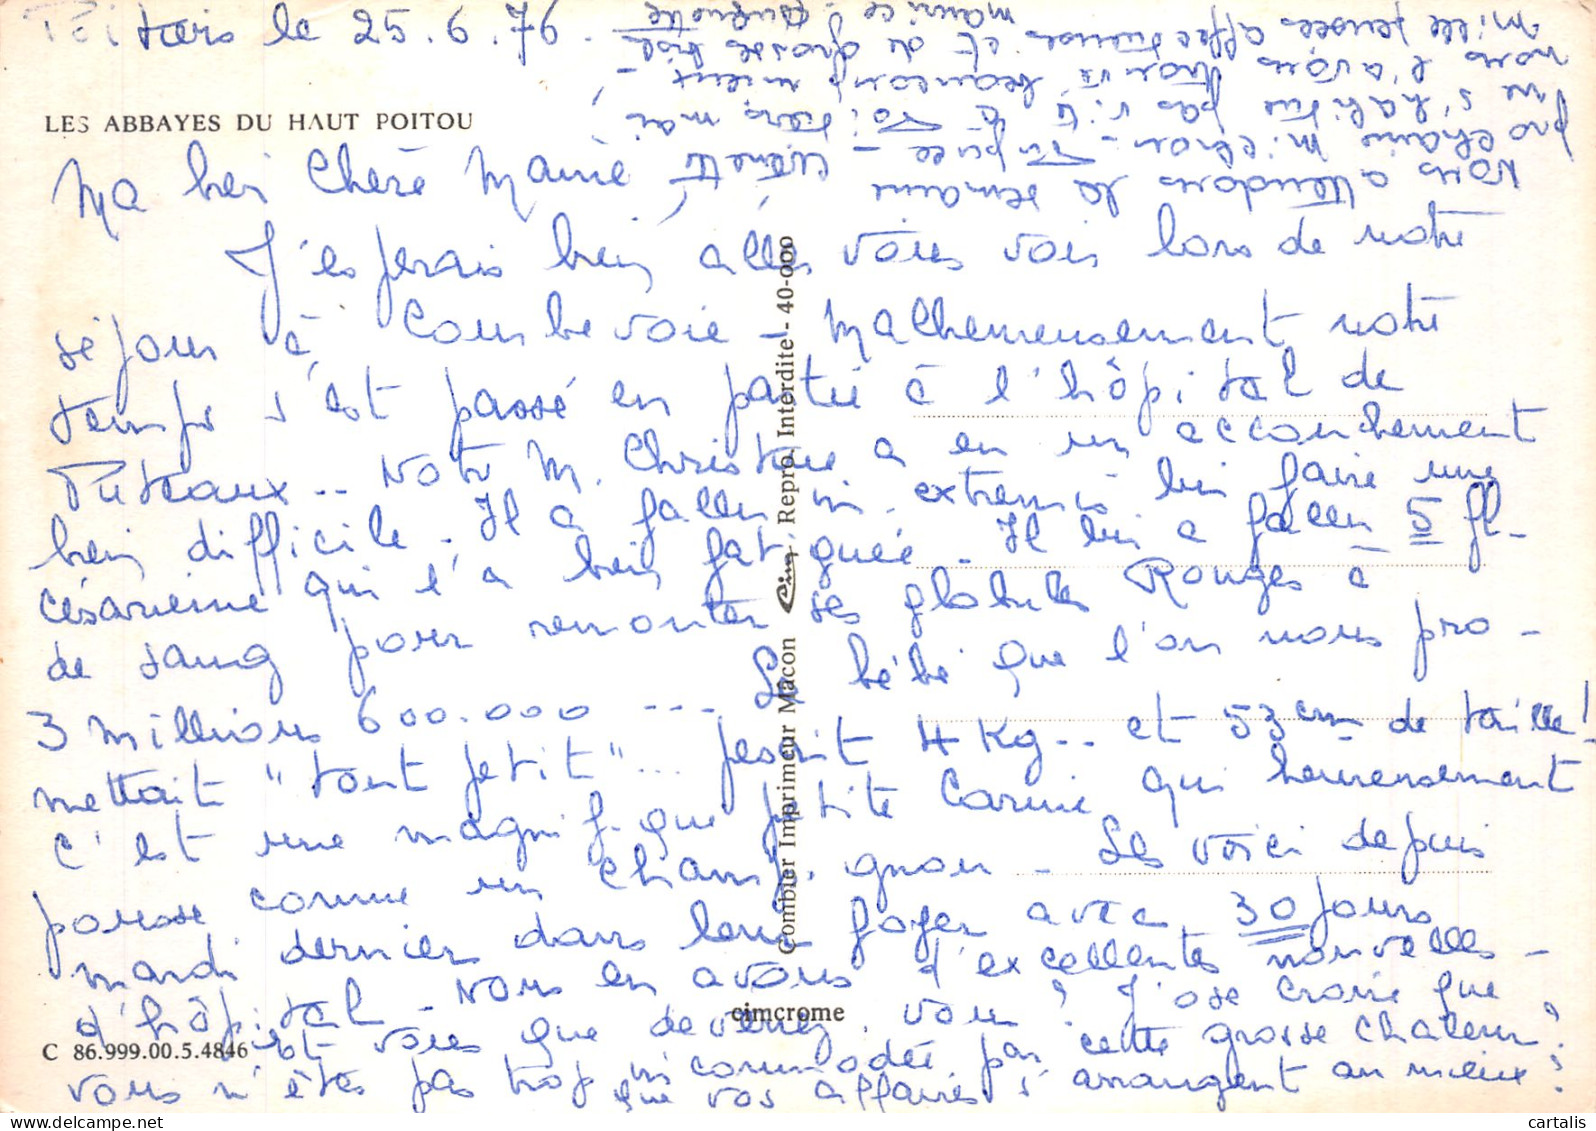 Poitiers le 25.6.76.
LES ABBAYES DU HAUT POITOU
Ma bien Chère Marie
J'espérais bien aller vous voir lors de notre
séjour à Courbevoie - Malheureusement notre
temps s'est passé en partie à l'hôpital de
Puteaux... Notre M. Christine a eu un accouchement
bien difficile. Il a fallu in extremis lui faire une
césarienne qui l'a bien fatiguée. Il lui a fallu 5 fl.
de sang pour remonter ses globules Rouges à
3 millions 600.000 --- Le bébé que l'on nous pro-
mettait "tout petit"... pesait 4 Kg... et 53 cm de taille!
C'est une magnifique petite Carine qui heureusement
pousse comme un champignon - Les voici depuis
mardi dernier dans leur foyer avec 30 jours
d'hôpital. Nous en avons d'excellentes nouvelles -
et vous que devenez vous? J'ose croire que
vous n'êtes pas trop incommodée par cette grosse chaleur?
que vos affaires s'arrangent au mieux?
Nous attendons la semaine
prochaine Michou - Sa puce -
ne s'habitue pas ici à Poitiers, mai
nous l'avons trouvé beaucoup mieux -
mille pensées affectueuses et de grosses bises
Maurice
Combier Imprimeur Macon Cim Repro Interdite - 40-000
cimcrome
C 86.999.00.5.4846
cartalis